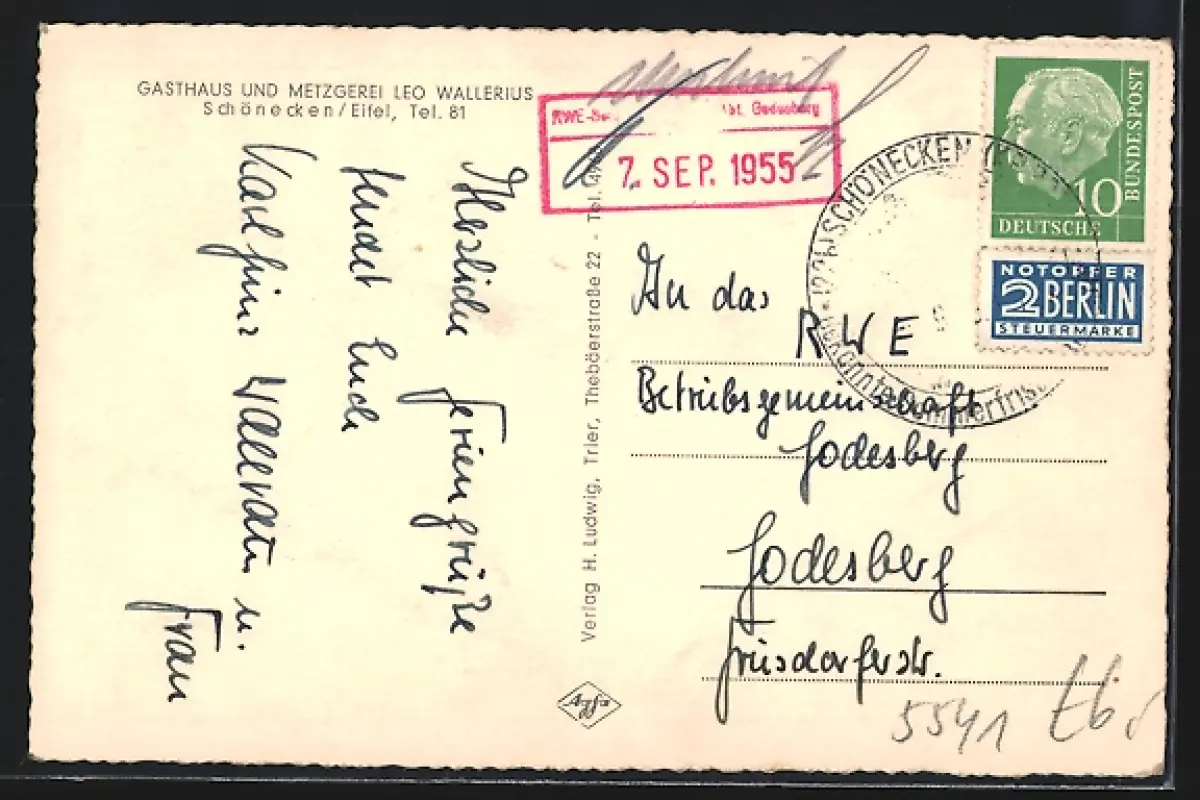 GASTHAUS UND METZGEREI LEO WALLERIUS
Schönecken/Eifel, Tel. 81
Herzliche Feriengrüße
sendet Euch
Karl Heinz Wallraten u.
Frau
Verlag H. Ludwig, Trier, Thebäerstraße 22 - Tel.
Agfa
RWE-
Abt. Godesberg
7. SEP. 1955
SCHÖNECKEN
BUNDESPOST
10
DEUTSCHE
NOTOPFER
2 BERLIN
STEUERMARKE
An das
RWE
Betriebsgemeinschaft
Godesberg
Godesberg
Friesdorferstr.
5541